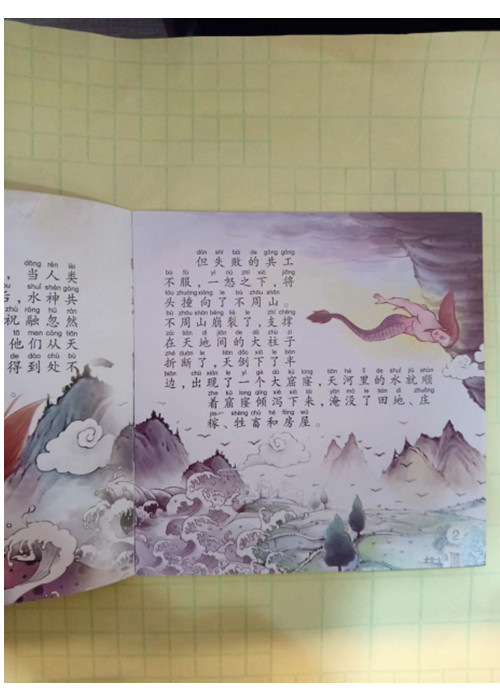 dāng rén lèi
，当人类
shuǐ shén gòng
后，水神共
zhù róng hū rán
祝融忽然
tā men cóng tiān
他们从天
de dào chù bù
得到处不
。
dàn shī bài de gòng gōng
但失败的共工
bù fú yí nù zhī xià jiāng
不服，一怒之下，将
tóu zhuàng xiàng le bù zhōu shān
头撞向了不周山。
bù zhōu shān bēng liè le zhī chēng
不周山崩裂了，支撑
zài tiān dì jiān de dà zhù zi
在天地间的大柱子
zhé duàn le tiān dǎo xià le bàn
折断了，天倒下了半
biān chū xiàn le yí gè dà kū long tiān hé lǐ de shuǐ jiù shùn
边，出现了一个大窟窿，天河里的水就顺
zhe kū long qīng xiè xià lái yān mò le tián dì zhuāng
着窟窿倾泻下来，淹没了田地、庄
jia shēng chù hé fáng wū
稼、牲畜和房屋。
2